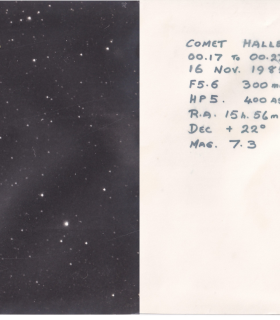 COMET HALLE
00.17 To 00.2
16 NOV. 198
F5.6 300m
HP5. 400 A
R.A. 15h. 56m
DEC + 22°
MAG. 7.3